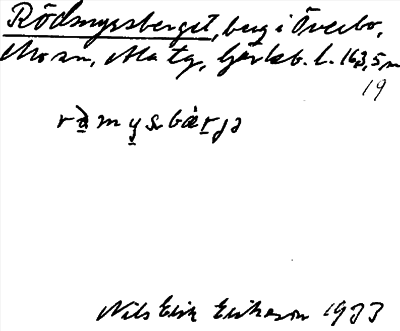 Rödmyrsberget, berg i Överbo,
Mo sn, Ma tg, Gävleb. l. 163,5 m
19
Nils Erik Eriksson 1933